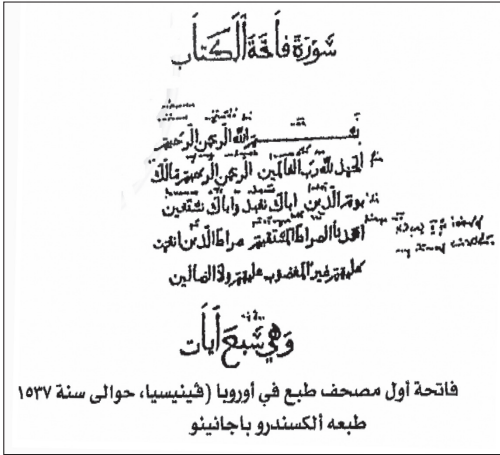 سورة فاتحة الكتاب
بسم الله الرحمن الرحيم
الحمد لله رب العالمين الرحمن الرحيم مالك
يوم الدين اياك نعبد واياك نستعين
اهدنا الصراط المستقيم صراط الدين انعمت
عليهم غير المغضوب عليهم ولا الضالين
وهي سبع ايات
فاتحة أول مصحف طبع في أوروبا (ڤينيسيا، حوالى سنة ١٥٣٧
طبعه ألكسندرو باجانينو